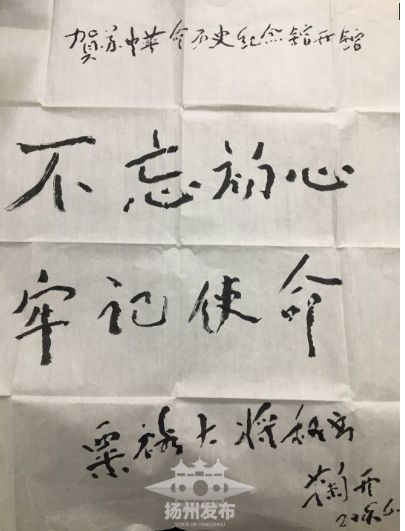 贺苏中革命历史纪念馆开馆
不忘初心
牢记使命
粟裕大将秘书
鞠开
扬州发布
VOICE OF YANGZHOU